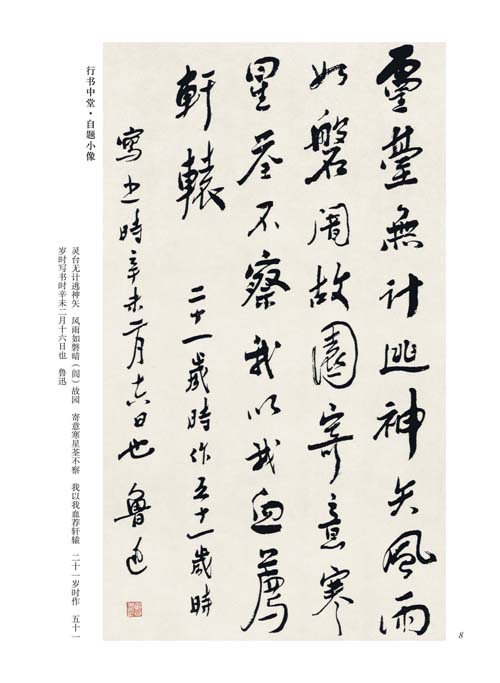 靈臺無計逃神矢風雨
如磐闇故園寄意寒
星荃不察我以我血薦
軒轅
二十一歲時作五十一歲時
寫之時辛未二月十六日也 魯迅
行书中堂·自题小像
灵台无计逃神矢 风雨如磐暗（闇）故园 寄意寒星荃不察 我以我血荐轩辕 二十一岁时作 五十一
岁时写书时辛未二月十六日也 鲁迅
8